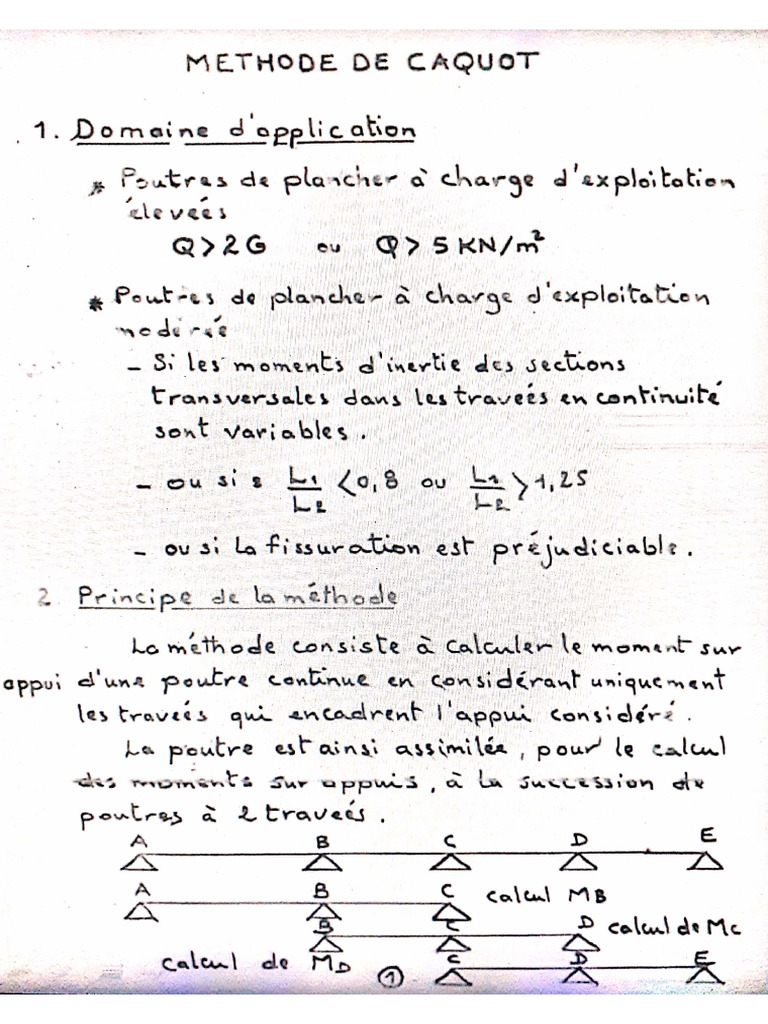 METHODE DE CAQUOT
1. Domaine d'application
* Poutres de plancher à charge d'exploitation
élevées
Q > 2G ou Q > 5 KN/m²
* Poutres de plancher à charge d'exploitation
modérée
- Si les moments d'inertie des sections
transversales dans les travées en continuité
sont variables.
- ou si : L1/L2 < 0,8 ou L1/L2 > 1,25
- ou si la fissuration est préjudiciable.
2. Principe de la méthode
La méthode consiste à calculer le moment sur
appui d'une poutre continue en considérant uniquement
les travées qui encadrent l'appui considéré.
La poutre est ainsi assimilée, pour le calcul
des moments sur appuis, à la succession de
poutres à 2 travées.
A B C D E
A B C calcul MB
B C D calcul de Mc
calcul de MD C D E
1